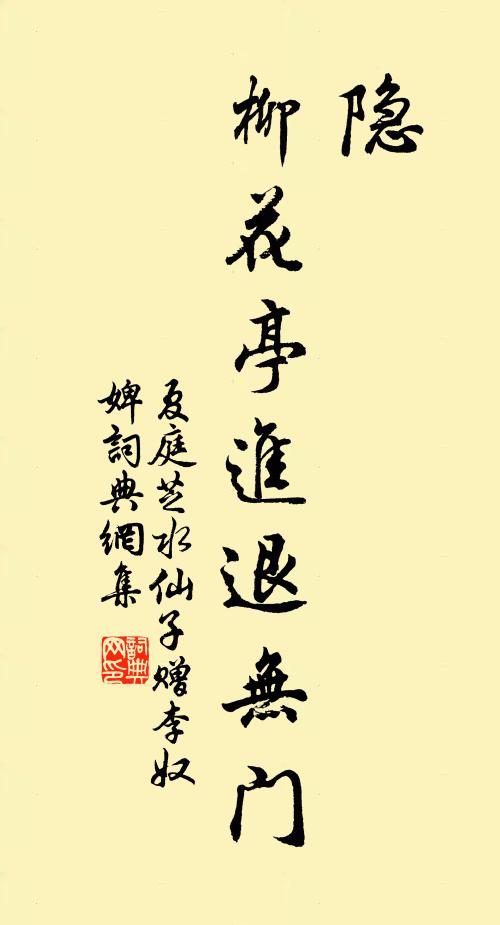 隐
柳花亭進退無門
夏庭芝水仙子赠李奴
婢詞典網集
詞典
网印